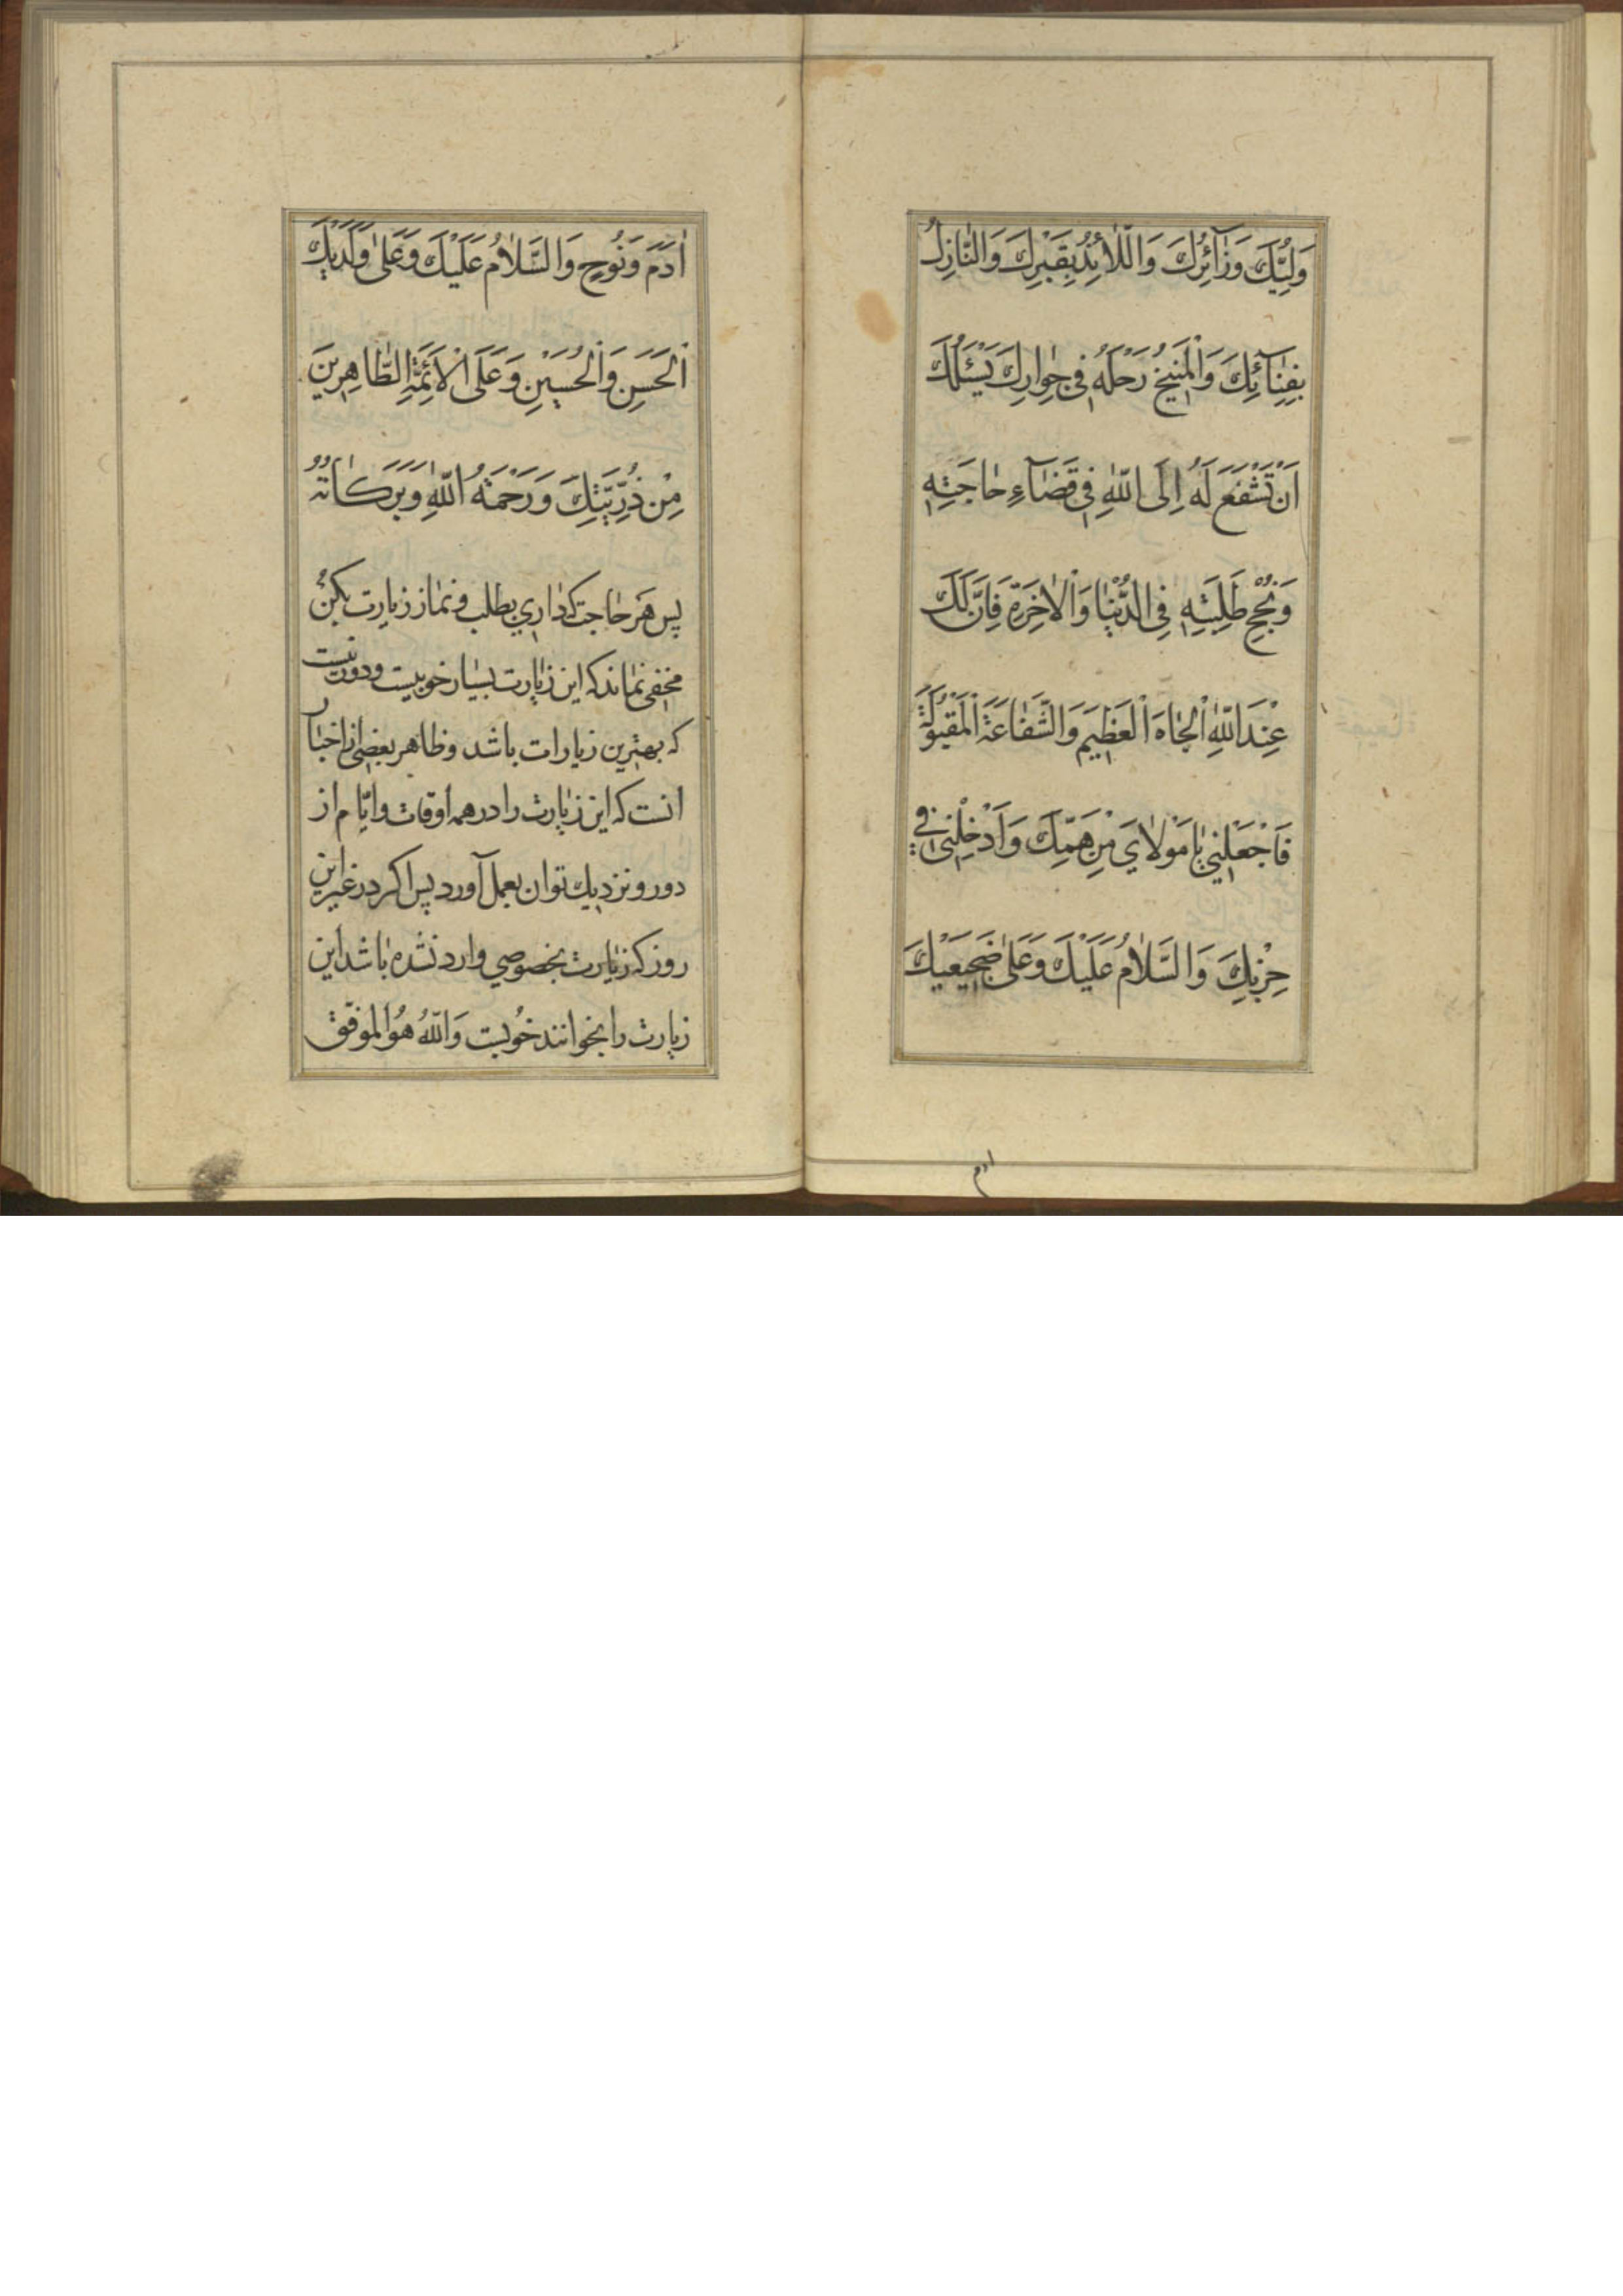 وَلِیُّكَ وَزَآئِرُكَ وَاللّٰآئِذُ بِقَبْرِكَ وَالنّٰازِلُ
بِفِنٰآئِكَ وَالْمُنیخُ رَحْلَهُ فی جِوٰارِكَ یَسْئَلُكَ
اَنْ تَشْفَعَ لَهُ اِلَی اللّٰهِ فی قَضٰآءِ حٰاجَتِهِ
وَنُجْحِ طَلِبَتِهِ فِی الدُّنْیٰا وَالْاٰخِرَةِ فَاِنَّ لَكَ
عِنْدَ اللّٰهِ الْجٰاهَ الْعَظیمَ وَالشَّفٰاعَةَ الْمَقْبُولَةَ
فَاجْعَلْنی یٰا مَوْلٰایَ مِنْ هَمِّكَ وَاَدْخِلْنی فی
حِزْبِكَ وَالسَّلٰامُ عَلَیْكَ وَعَلیٰ ضَجیعَیْكَ
ادم
اٰدَمَ وَنُوحٍ وَالسَّلٰامُ عَلَیْكَ وَعَلیٰ وَلَدَیْكَ
الْحَسَنِ وَالْحُسَیْنِ وَعَلَی الْاَئِمَّةِ الطّٰاهِرینَ
مِنْ ذُرِّیَّتِكَ وَرَحْمَةُ اللّٰهِ وَبَرَكٰاتُهُ
پس هر حاجت که داری بطلب و نماز زیارت بکن
مخفی نماند که این زیارت بسیار خوبیست و دور نیست
که بهترین زیارات باشد و ظاهر بعضی از اخبار
انست که این زیارت را در همه اوقات و ایّام از
دور و نزدیك توان بعمل آورد پس اکر در غیر این
روز که زیارت بخصوصی وارد نشده باشد این
زیارت را بخوانند خُوبست وَاللّٰهُ هُوَ الموفّق